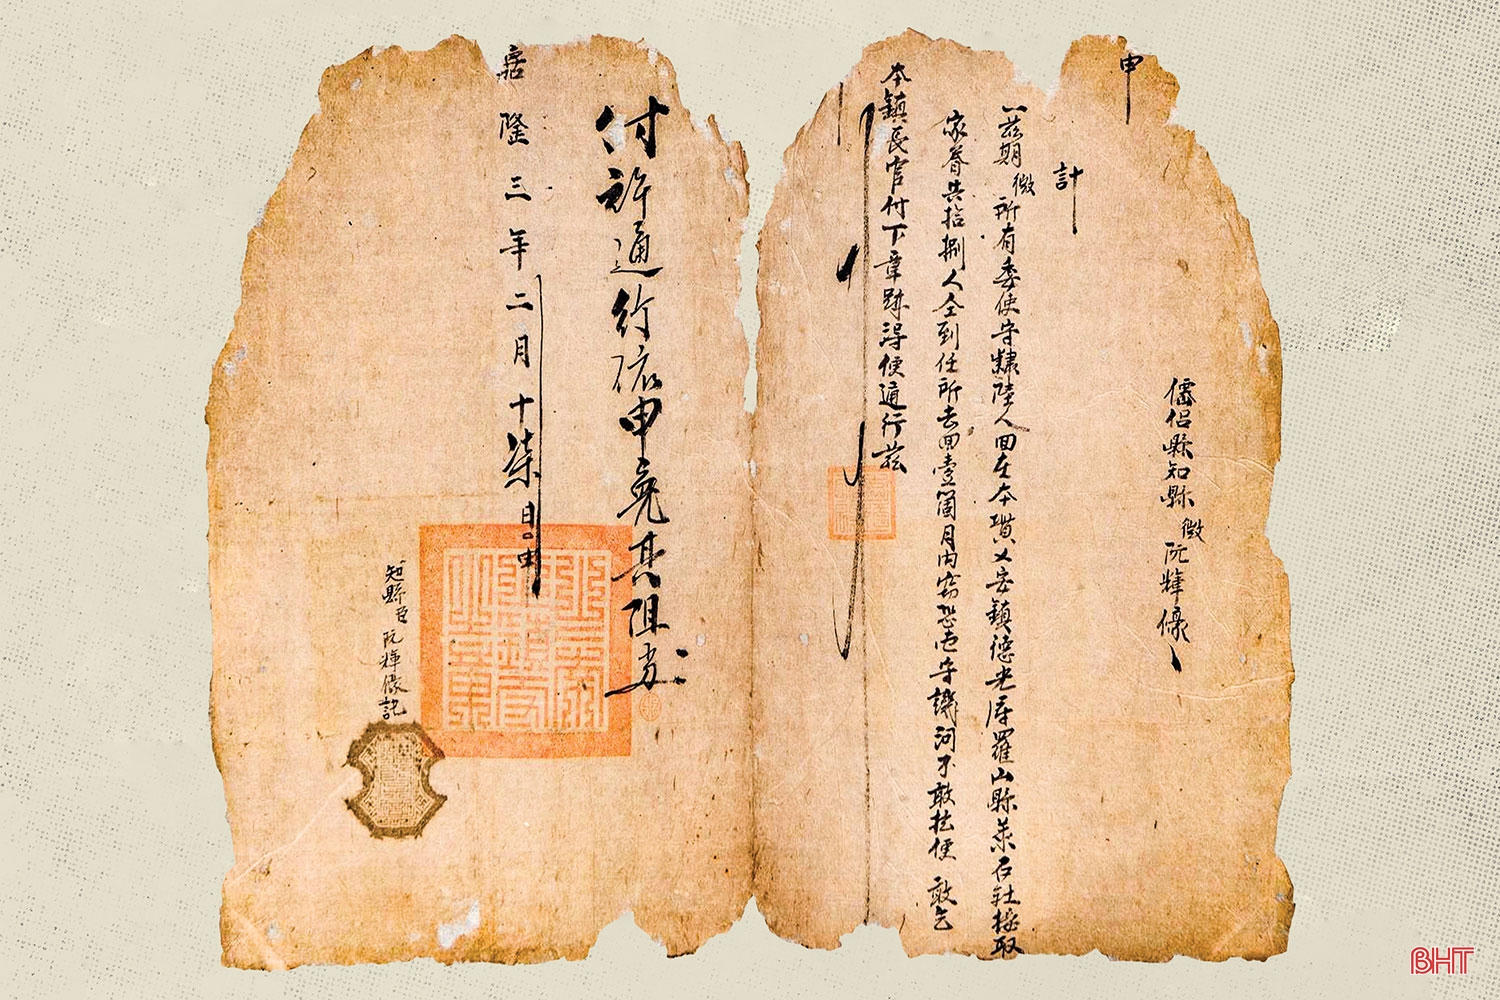 申
儒侣縣知縣微阮輝㒟
計
一茲期微所有委使守隸陸人回在本貫乂安鎮德光府羅山縣萊石社接取
家眷共拾捌人仝到任所去回壹箇月内窃恐屯守譏河不敢扶便 敢乞
本鎮長官付下章跡得便通行茲
付許通行依申免其阻当
嘉隆三年二月十柒日申
知縣臣阮輝㒟記
BHT